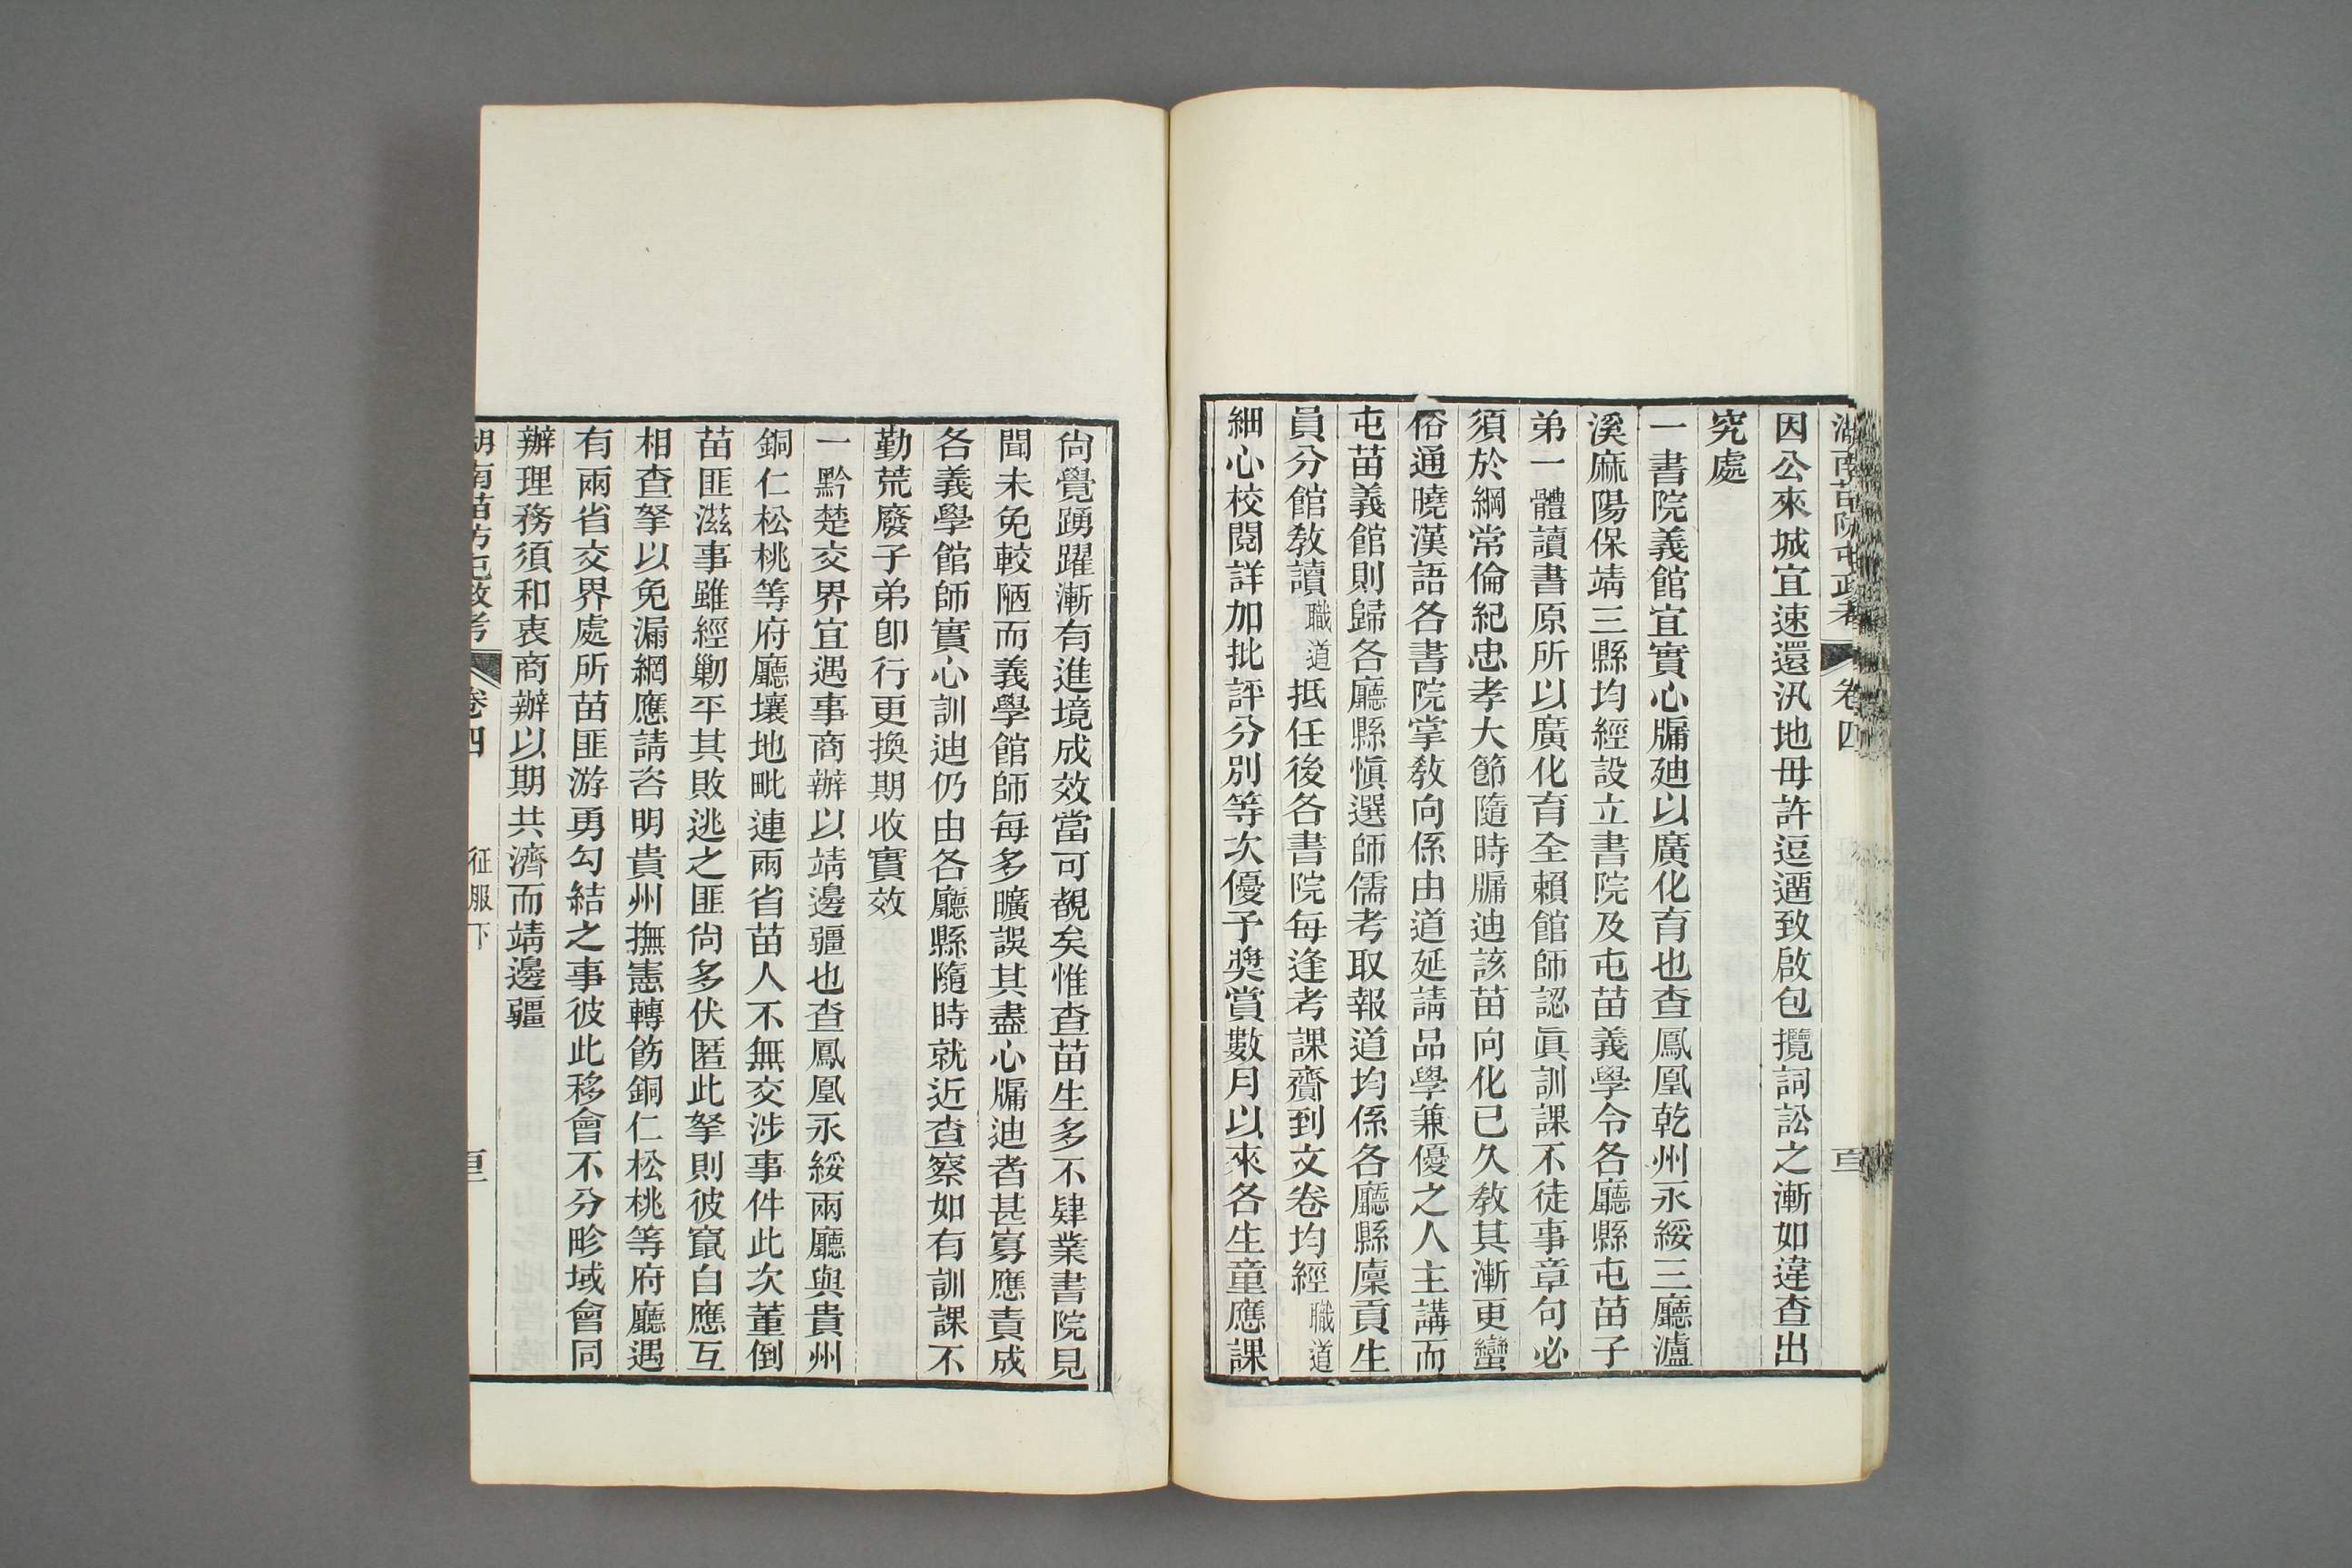 湖南苗防屯政考　卷四
因公來城宜速還汛地毋許逗遛致啟包攬詞訟之漸如違查出
究處
一書院義館宜實心牖廸以廣化育也查鳳凰乾州永綏三廳瀘
溪麻陽保靖三縣均經設立書院及屯苗義學令各廳縣屯苗子
弟一體讀書原所以廣化育全賴館師認眞訓課不徒事章句必
須於綱常倫紀忠孝大節隨時牖迪該苗向化已久敎其漸更蠻
俗通曉漢語各書院掌敎向係由道延請品學兼優之人主講而
屯苗義館則歸各廳縣愼選師儒考取報道均係各廳縣廩貢生
員分館敎讀職道抵任後各書院每逢考課齎到文卷均經職道
細心校閱詳加批評分別等次優予獎賞數月以來各生童應課
尙覺踴躍漸有進境成效當可覩矣惟查苗生多不肄業書院見
聞未免較陋而義學館師每多曠誤其盡心牖迪者甚寡應責成
各義學館師實心訓迪仍由各廳縣隨時就近查察如有訓課不
勤荒廢子弟卽行更換期收實效
一黔楚交界宜遇事商辦以靖邊疆也查鳳凰永綏兩廳與貴州
銅仁松桃等府廳壤地毗連兩省苗人不無交涉事件此次董倒
苗匪滋事雖經勦平其敗逃之匪尙多伏匿此拏則彼竄自應互
相查拏以免漏網應請咨明貴州撫憲轉飭銅仁松桃等府廳遇
有兩省交界處所苗匪游勇勾結之事彼此移會不分畛域會同
辦理務須和衷商辦以期共濟而靖邊疆
湖南苗防屯政考　卷四　征服下